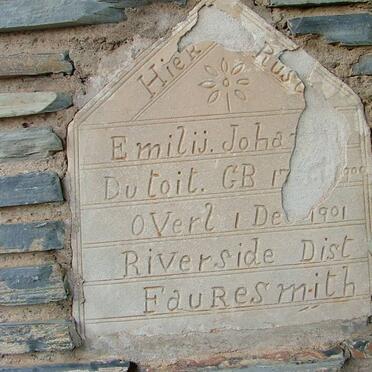 Hier Rust
Emilij. Joha
Dutoit. GB 17 1900
OVerl 1 De 1901
Riverside Dist
FauResmith